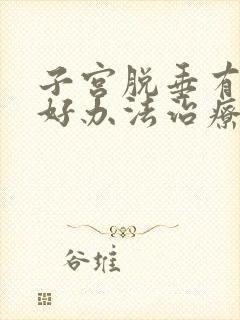 子宫脱垂有
好办法治疗
谷堆